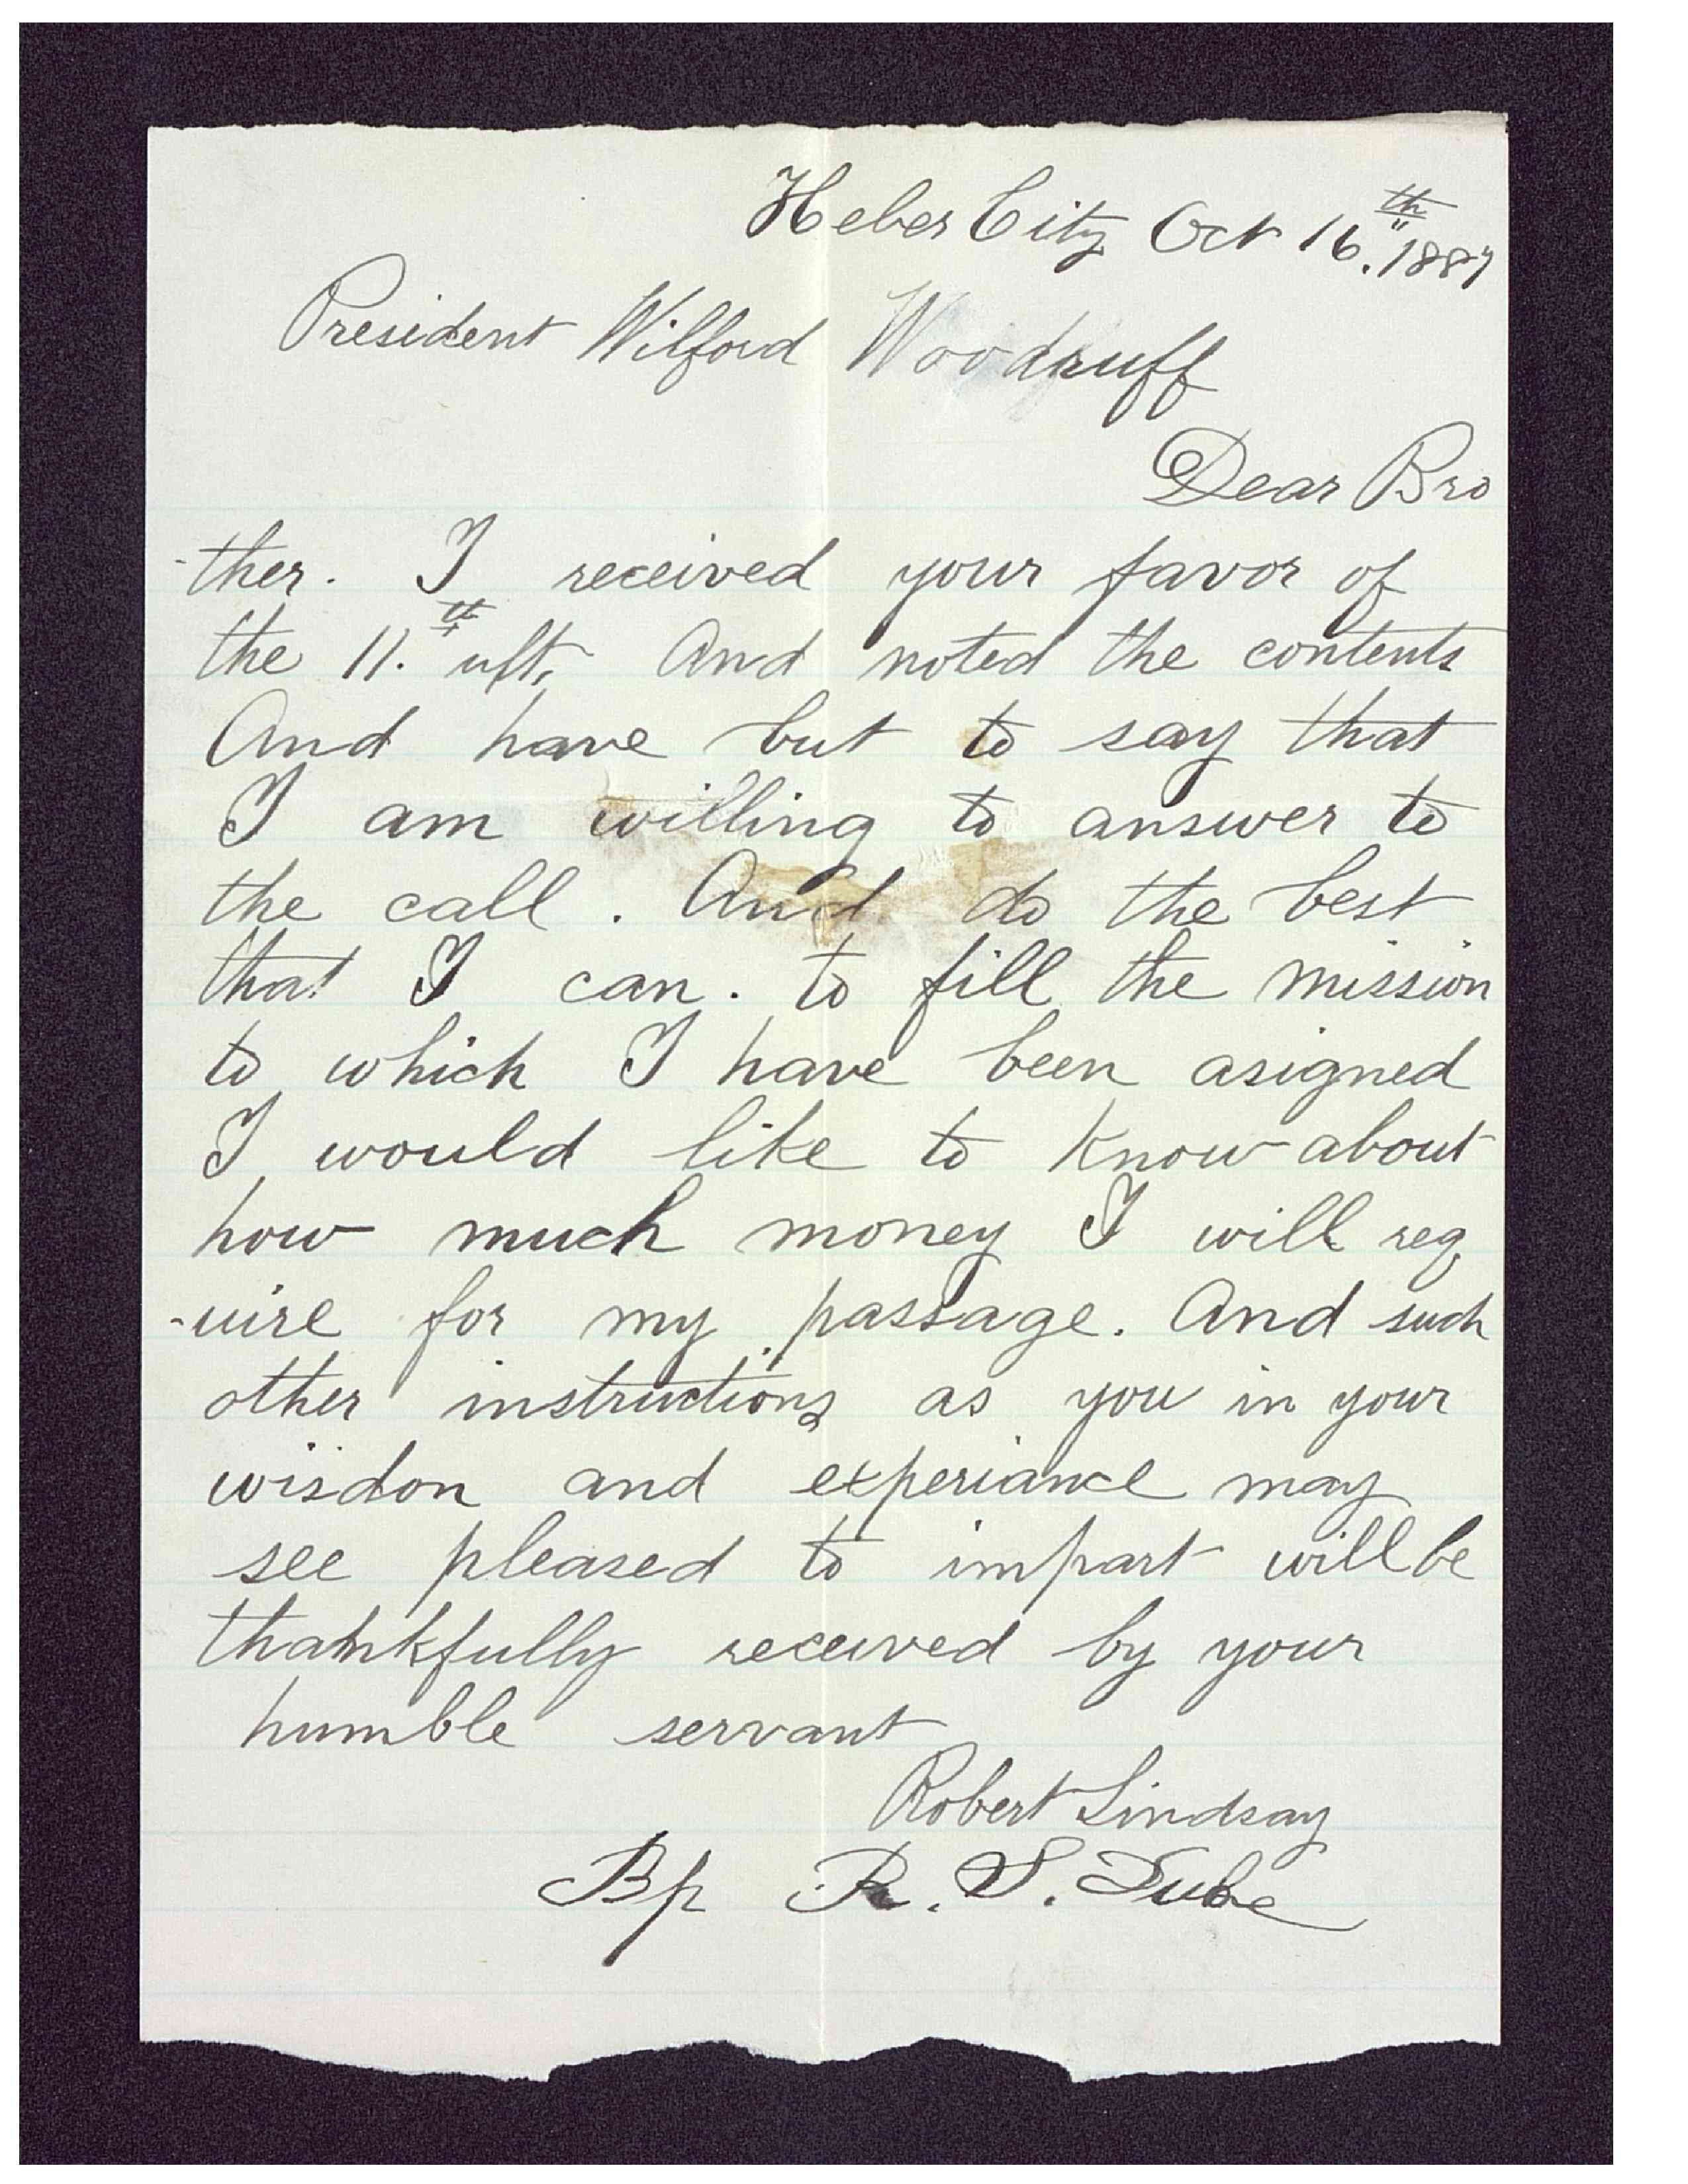 Heber City Oct 16.th 1887
President Wilford Woodruff
Dear Bro
-ther. I received your favor of
the 11.th ult, And noted the contents
And have but to say that
I am willing to answer to
the call. And do the best
that I can. to fill the mission
to which I have been asigned
I would like to know about
how much money I will req
-uire for my passage. And such
other instructions as you in your
wisdon and experiance may
see pleased to impart will be
thankfully received by your
humble servant
Robert Lindsay
Bp R. S. Duke